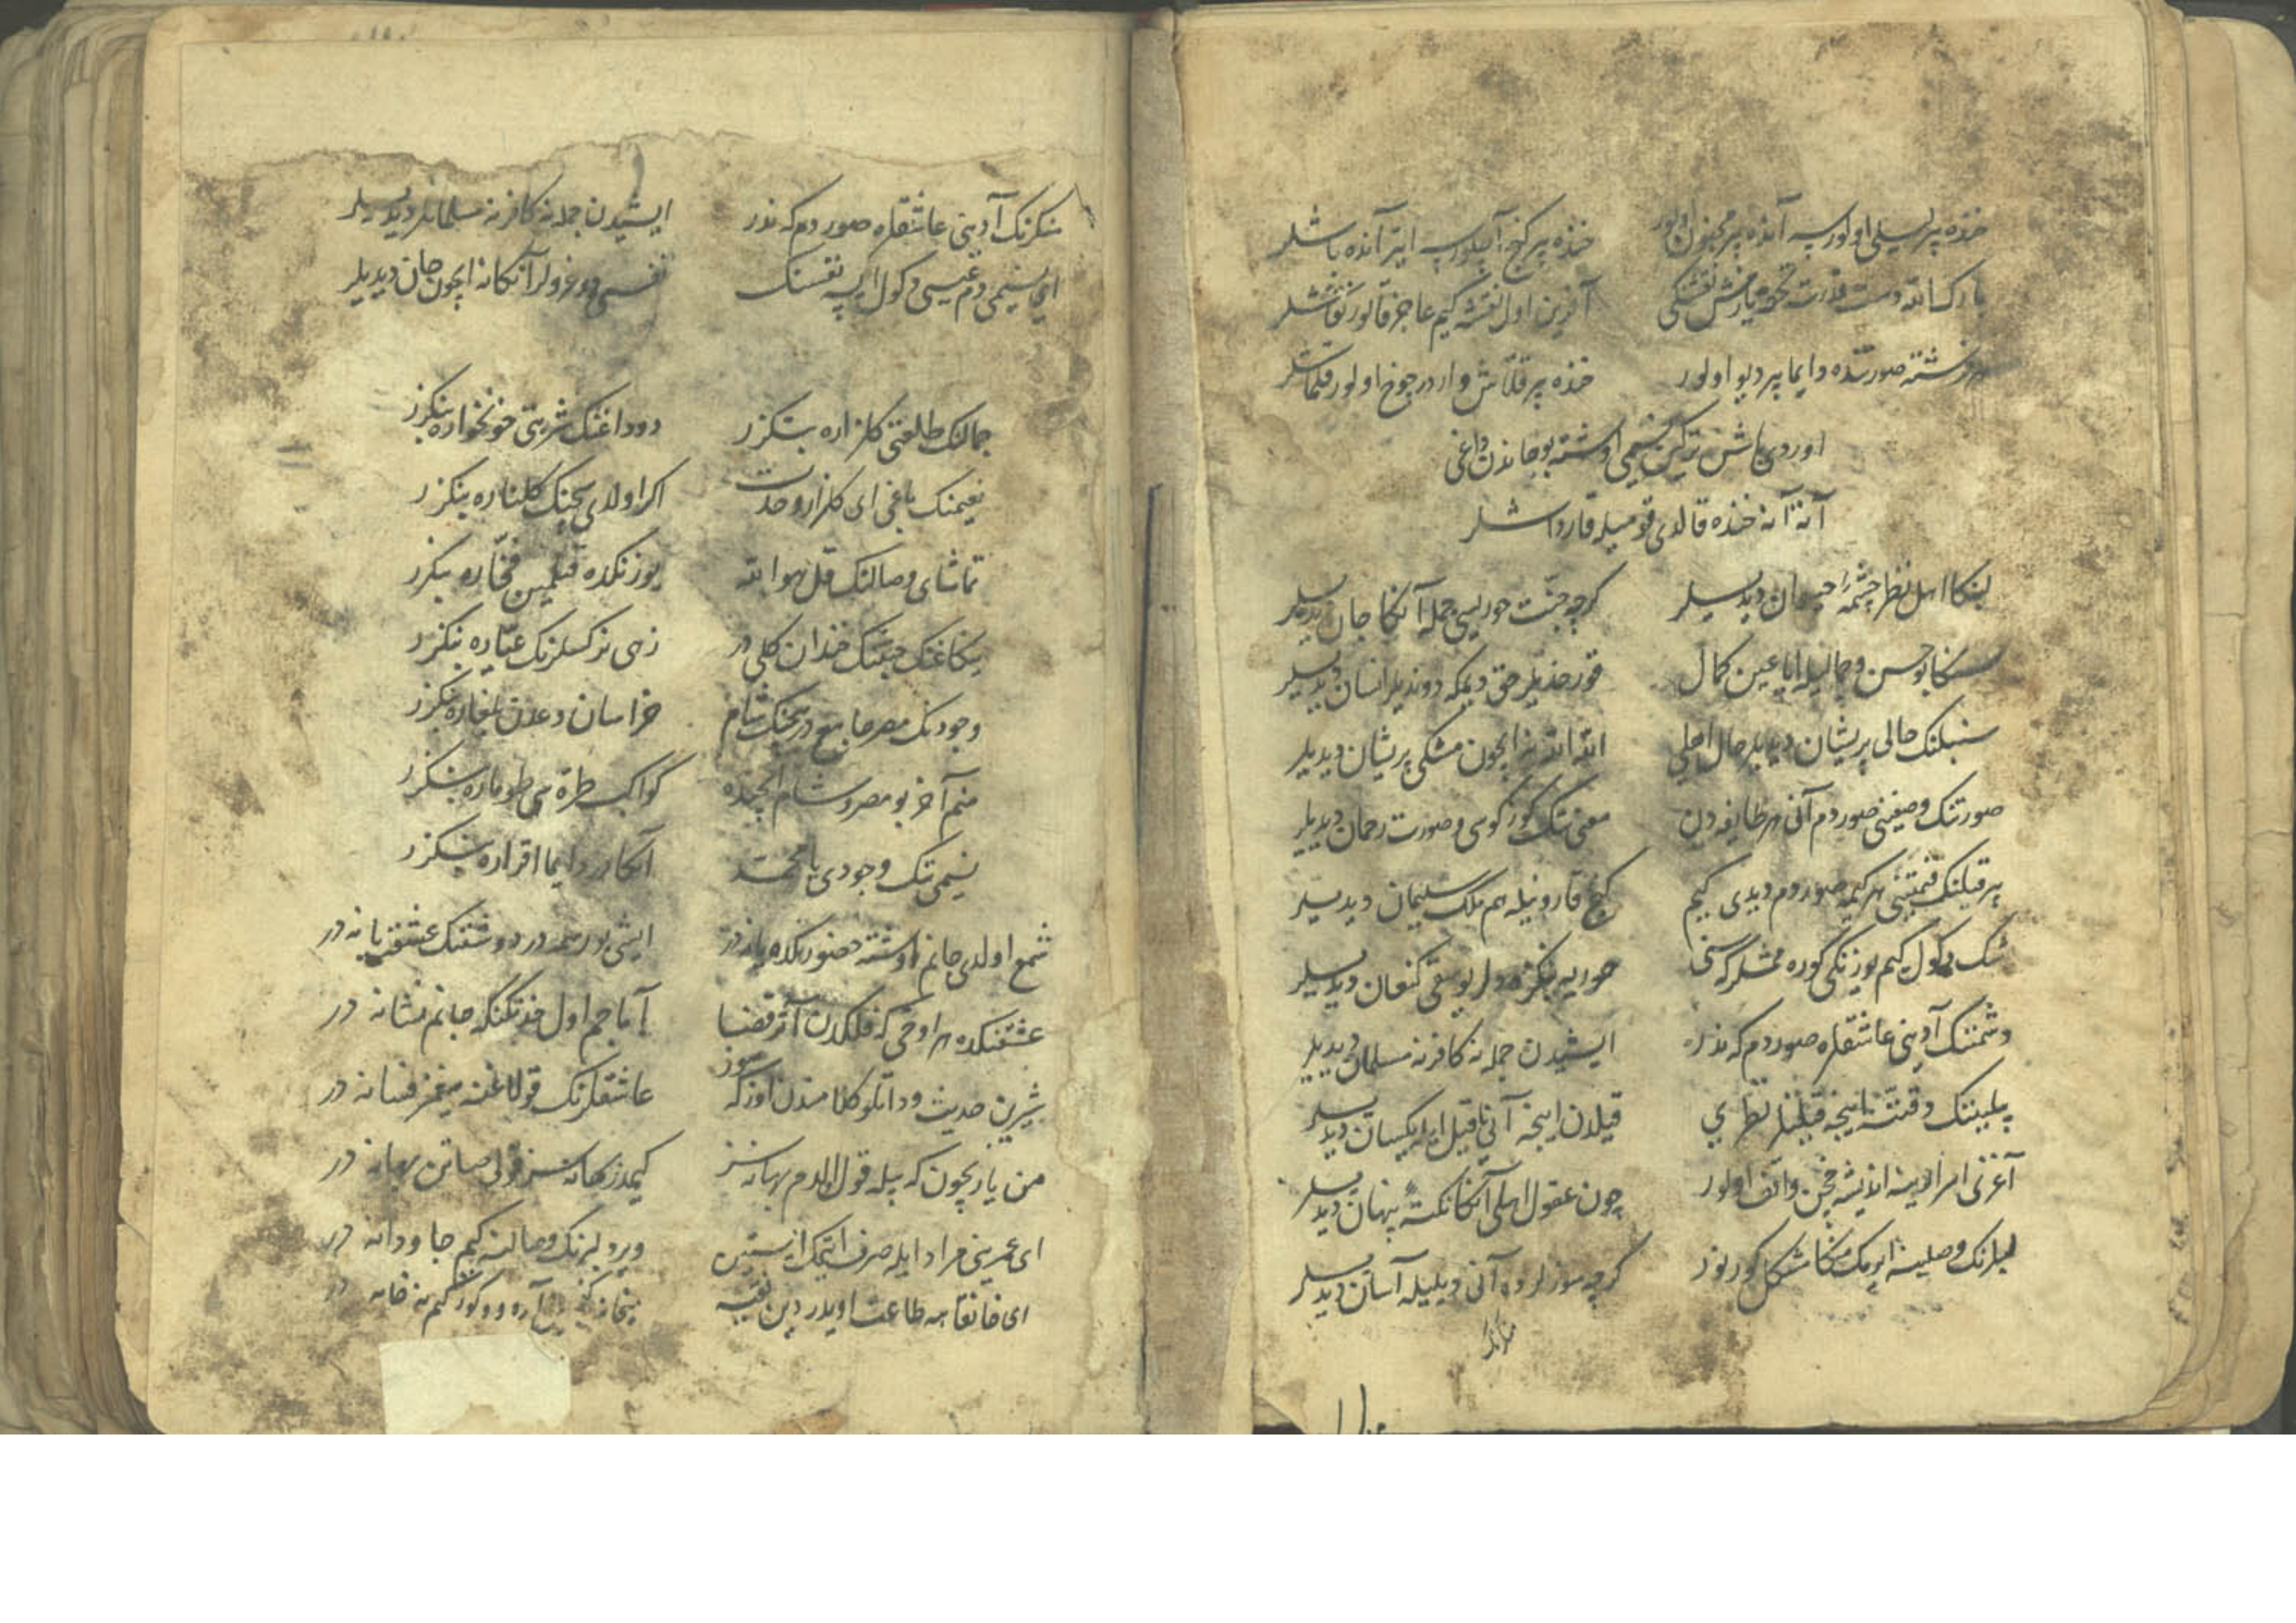 خنده بر لیلی اولورسه آنده بر مجنون اولور خنده بر کنج آچیلورسه اپتر آنده باشلر
بارک الله دست قدرت یازمش نقشکی آفرین اول نقشه کیم عاجز قالور نقاشلر
فرشته صورتنده دایما بر دیو اولور خنده بر قلاش واردر چوخ اولور قلماشلر
اوردی باش ترکین نسیمی اوشته بو جاندن داغی
آتا آنا خنده قالدی قومیله قارداشلر
لبنکا اهل نظر چشمهٔ حیوان دیدیلر کرچه جنت حوریسی جمله آنکا جان دیدیلر
سنکا بو حسن و جمالیله ایا عین کمال قورخدیلر حق دیمکه دوندیلر انسان دیدیلر
سنبلنک حالی پریشان دیدیلر حال اهلی الله الله نه ایچون مشکی پریشان دیدیلر
صورتنک وصفینی صوردم آنی هر طایفه دن معنی تنک کوزکوسی و صورت رحمان دیدیلر
بر قیلنک قیمتینی هر کیمه صوردم دیدی کیم کنج قارونیله هم ملک سلیمان دیدیلر
شک دکول کیم یوزنکی کوره مشلر که سنی حوریه بنکزه دولر یوسف کنعان دیدیلر
دشمننک آدینی عاشقلره صوردم که ندر ایشیدن جمله نه کافر نه مسلمان دیدیلر
بیلیننک دقتنه اینجه قیلنلر نظری قیلدن اینجه آنی قیل ایله یکسان دیدیلر
آغزی اسرارینه اندیشه چن واقف اولور چون عقول اهلی آنکا نکتهٔ پنهان دیدیلر
لبلرنک وصلینه ایرمک منکا مشکل کورنور کرچه سوزلرده آنی دیلیله آسان دیدیلر
شکرنک آدینی عاشقلره صوردم که ندر ایشیدن جمله نه کافر نه مسلمانلر دیدیلر
ای نسیمی دم عیسی دکول ایسه نفسنک نفسی دوغرولر آنکا نه ایچون جان دیدیلر
جمالنک طلعتی کلزاره بنکزر دوداغنک شربتی خونخواره بنکزر
نعیمنک باغی ای کلزار وحدت اکر اولدی سچنک کلناره بنکزر
تماشای وصالنک قل هو الله یوزنکده فخاره بنکزر
ینکاغنک جنتنک خندان کلی در زهی نرکسلرنک عیاره بنکزر
وجودنک مصر جامع در سچنک شام خراسان و عدن بلغاره بنکزر
منم آخر بو مصر و شام ایچنده کواکب طره سی طوماره بنکزر
نسیمی تنک وجودی یا محمد آنکا در دایما اقراره بنکزر
شمع اولدی جانم اوشته حضورنکده یانه در ایشی بو رسمه در دوشنک عشقه یانه در
عشقنکده هر اوخی که فلکدن آتر قضا آماجم اول خدنکنکه جانم نشانه در
شیرین حدیث و داتلو کلامندن اوزکه سوز عاشقلرنک قولاغنه سیغمز فسانه در
من یار بچون که بیله قول اولدم بهانه سز کیمدر بهانه سز قولی صاتن بهانه در
ای عمرینی مراد ایله صرف ایتمک ایستین ویر دلبرنک وصالنه کیم جاودانه در
ای خانقاهه طاعت اویدر دین فقیه میخانه کور کیم نه خانه در